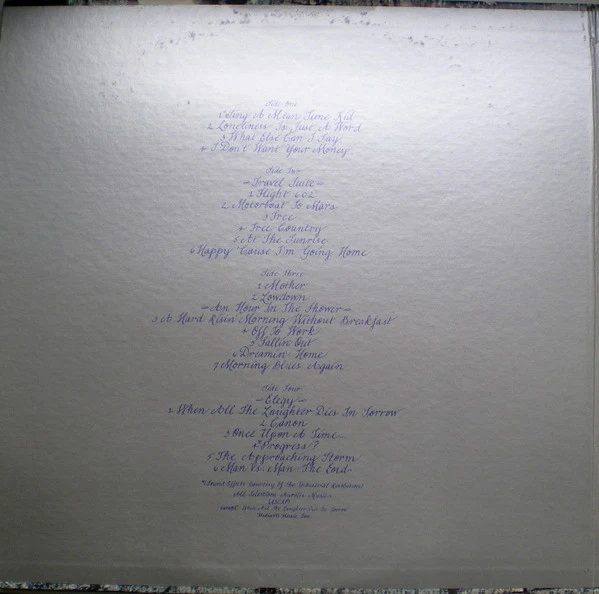 Side One
1 Sing A Mean Tune Kid
2 Loneliness Is Just A Word
3 What Else Can I Say
4 I Don't Want Your Money
Side Two
—Travel Suite—
1 Flight 602
2 Motorboat To Mars
3 Free
4 Free Country
5 At The Sunrise
6 Happy 'Cause I'm Going Home
Side Three
1 Mother
2 Lowdown
—An Hour In The Shower—
3 A Hard Risin Morning Without Breakfast
4 Off To Work
5 Fallin Out
6 Dreamin' Home
7 Morning Blues Again
Side Four
—Elegy—
1 When All The Laughter Dies In Sorrow
2 Canon
3 Once Upon A Time...
4 *Progress?
5 The Approaching Storm
6 Man Vs. Man-The End-
*Sound Effects Courtesy Of The Industrial Revolution
All Selections Aurelius Music
(ASCAP)
Except When All The Laughter Dies In Sorrow
Music, Inc.